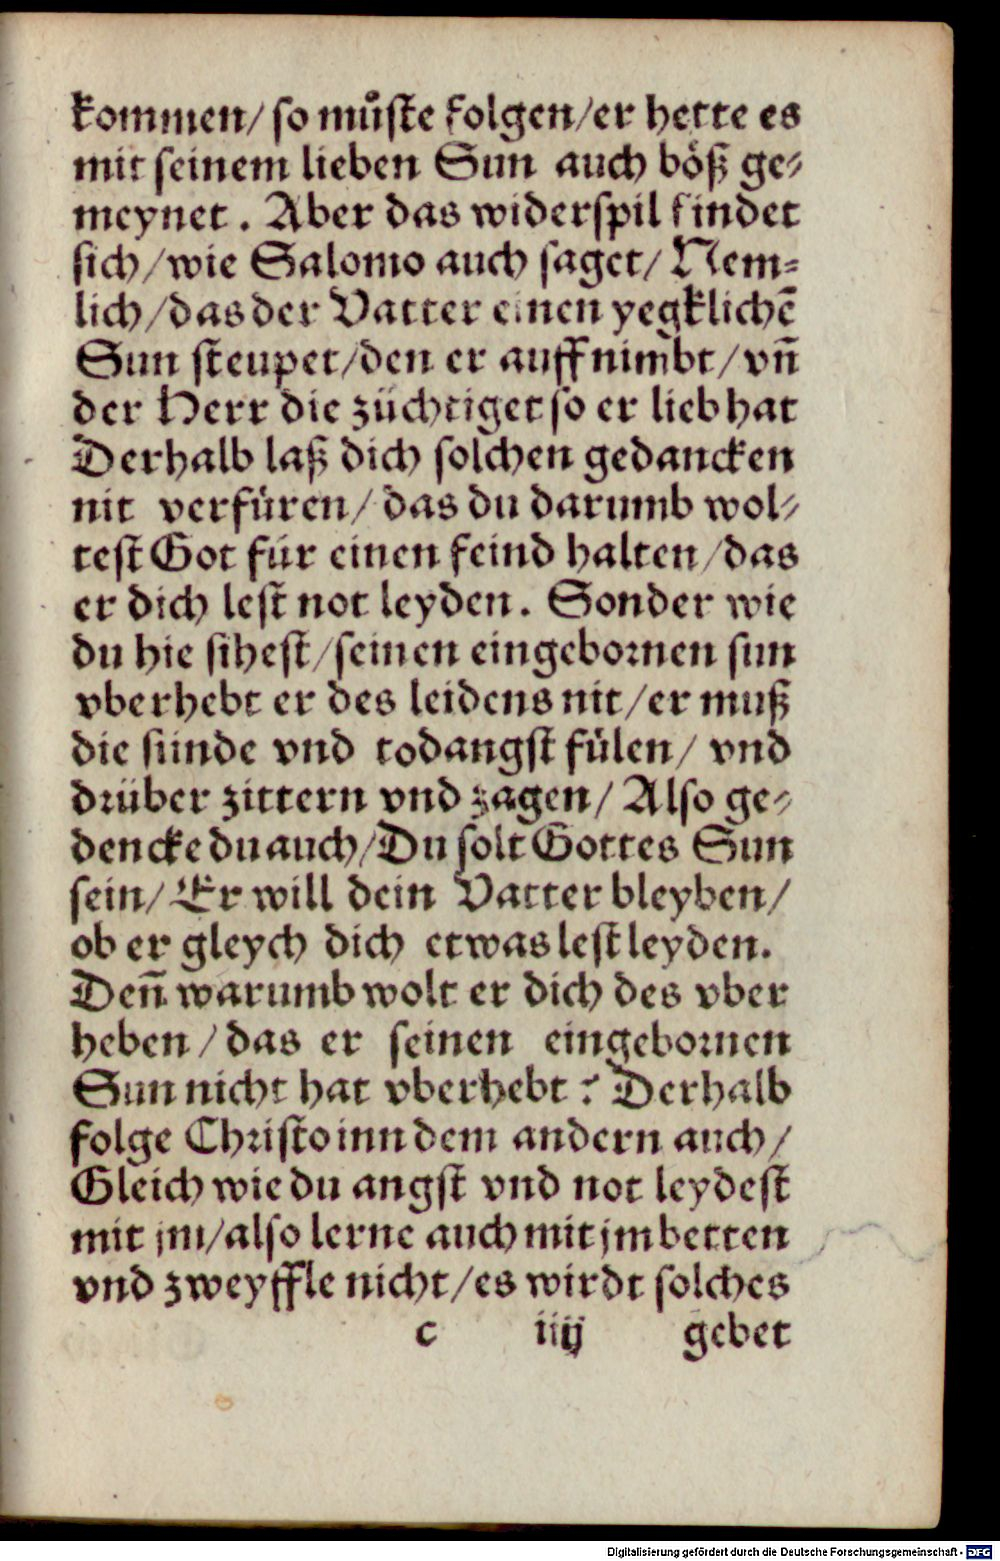 kommen/ so muͦste folgen/er hette es
mit seinem lieben Sun auch böß ge-
meynet. Aber das widerspil findet
sich/wie Salomo auch saget/ Nem-
lich/das der Vatter einen yegklichē
Sun steupet/den er auffnimbt/ vn̄
der Herr die züchtiget so er lieb hat
Derhalb laß dich solchen gedancken
nit verfüren/ das du darumb wol-
test Got für einen feind halten/das
er dich lest not leyden. Sonder wie
du hie sihest/seinen eingebornen sun
vberhebt er des leidens nit/er muß
die sünde vnd todangst fülen/ vnd
drüber zittern vnd zagen/ Also ge-
dencke du auch/Du solt Gottes Sun
sein/ Er will dein Vatter bleyben/
ob er gleych dich etwas lest leyden.
Den̄ warumb wolt er dich des vber
heben/das er seinen eingebornen
Sun nicht hat vberhebt? Derhalb
folge Christo inn dem andern auch/
Gleich wie du angst vnd not leydest
mit jm/also lerne auch mit jm betten
vnd zweyffle nicht/es wirdt solches
c iiij gebet
Digitalisierung gefördert durch die Deutsche Forschungsgemeinschaft - DFG